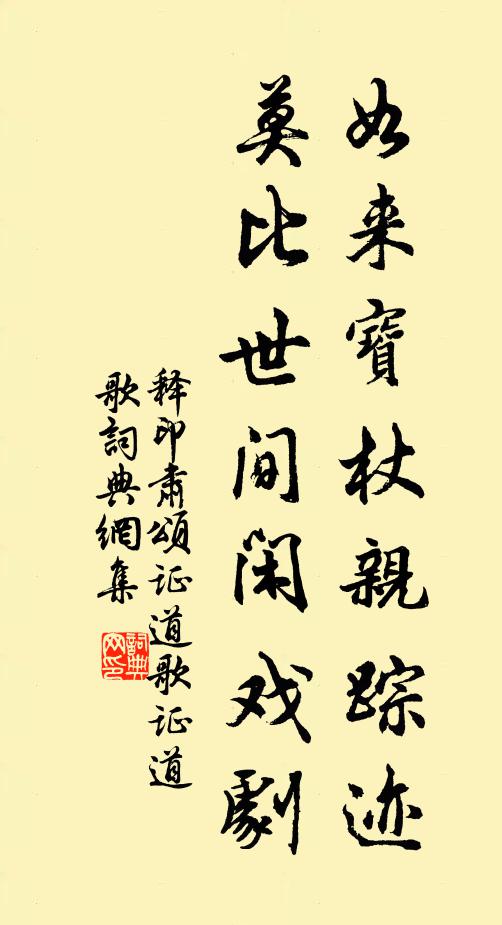 如来寶杖親踪迹
莫比世间闲戏劇
释印肃頌证道歌证道
歌詞典網集
詞典网印